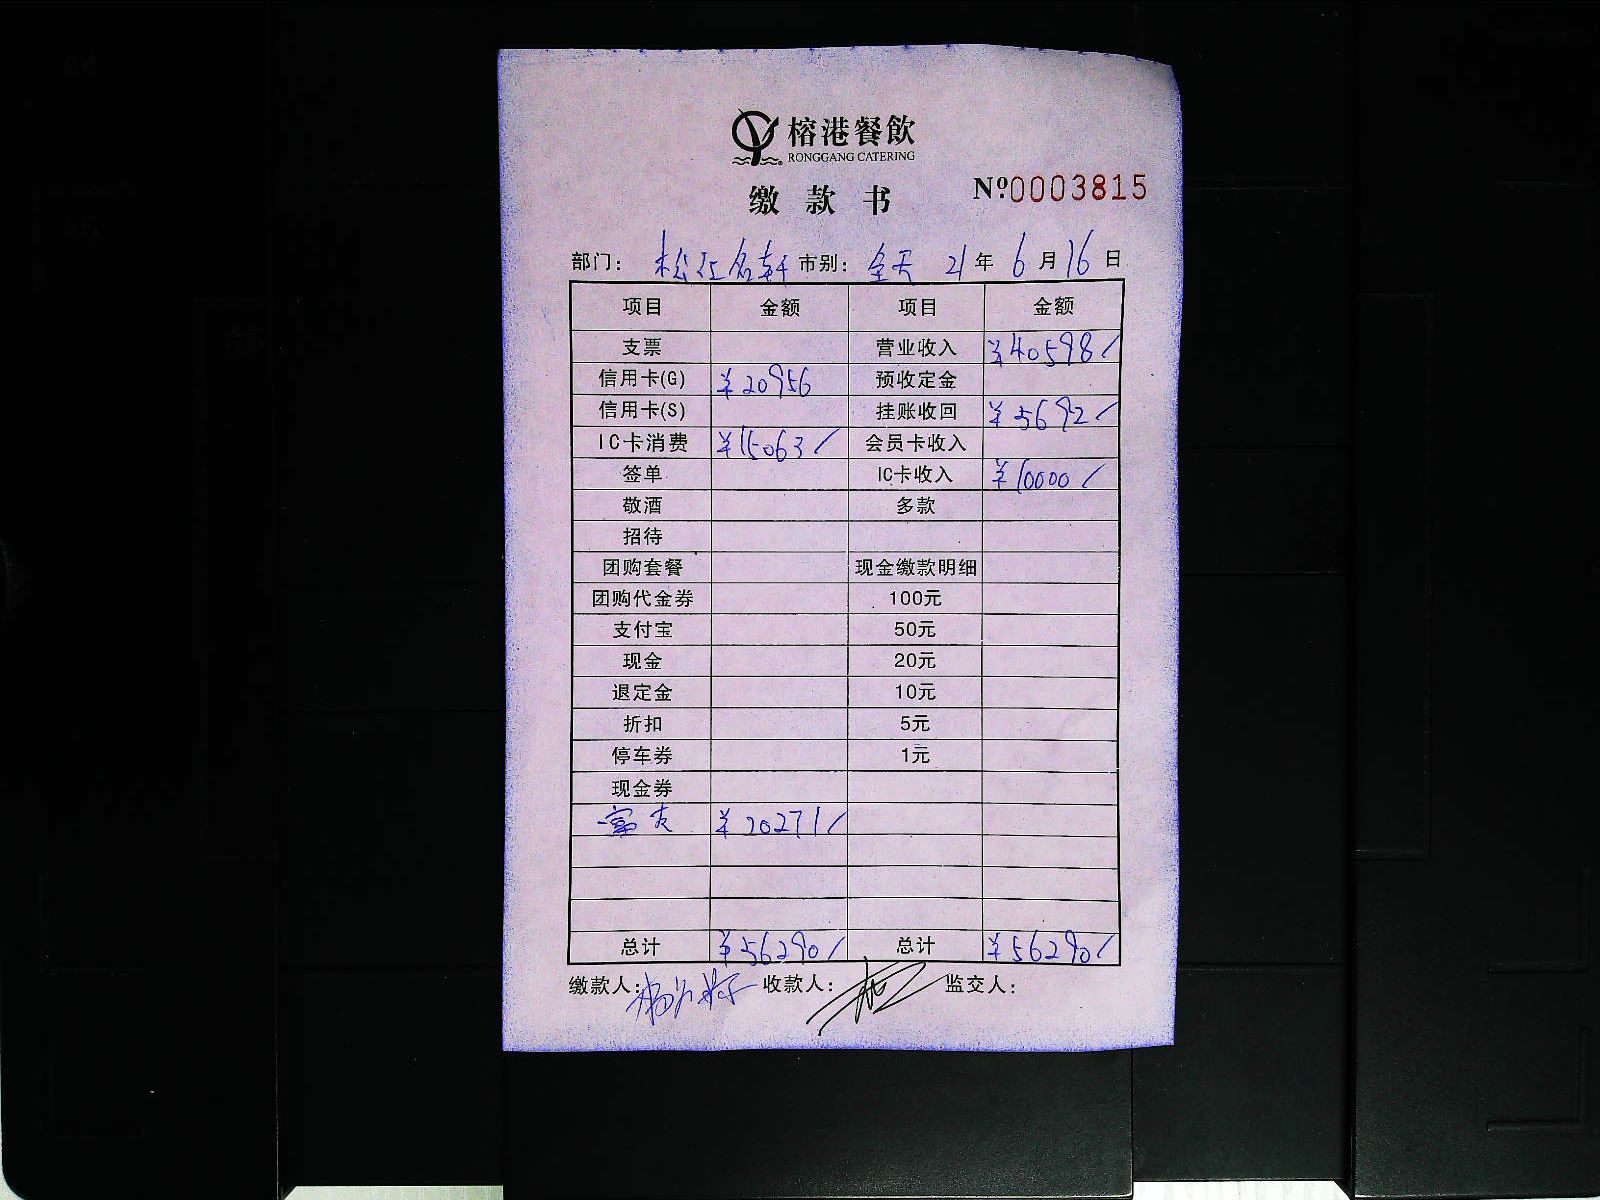 榕港餐飲
RONGGANG CATERING
缴款书 Nº 0003815
部门: 松江名轩 市别: 全天 21年6月16日
项目 金额 项目 金额
支票 营业收入 ¥40598/
信用卡(G) ¥20956 预收定金
信用卡(S) 挂账收回 ¥5692/
IC卡消费 ¥15063/ 会员卡收入
签单 IC卡收入 ¥10000/
敬酒 多款
招待
团购套餐 现金缴款明细
团购代金券 100元
支付宝 50元
现金 20元
退定金 10元
折扣 5元
停车券 1元
现金券
富友 ¥20271/
总计 ¥56290/ 总计 ¥56290/
缴款人: 收款人: 监交人: